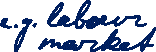 e.g. labour
market